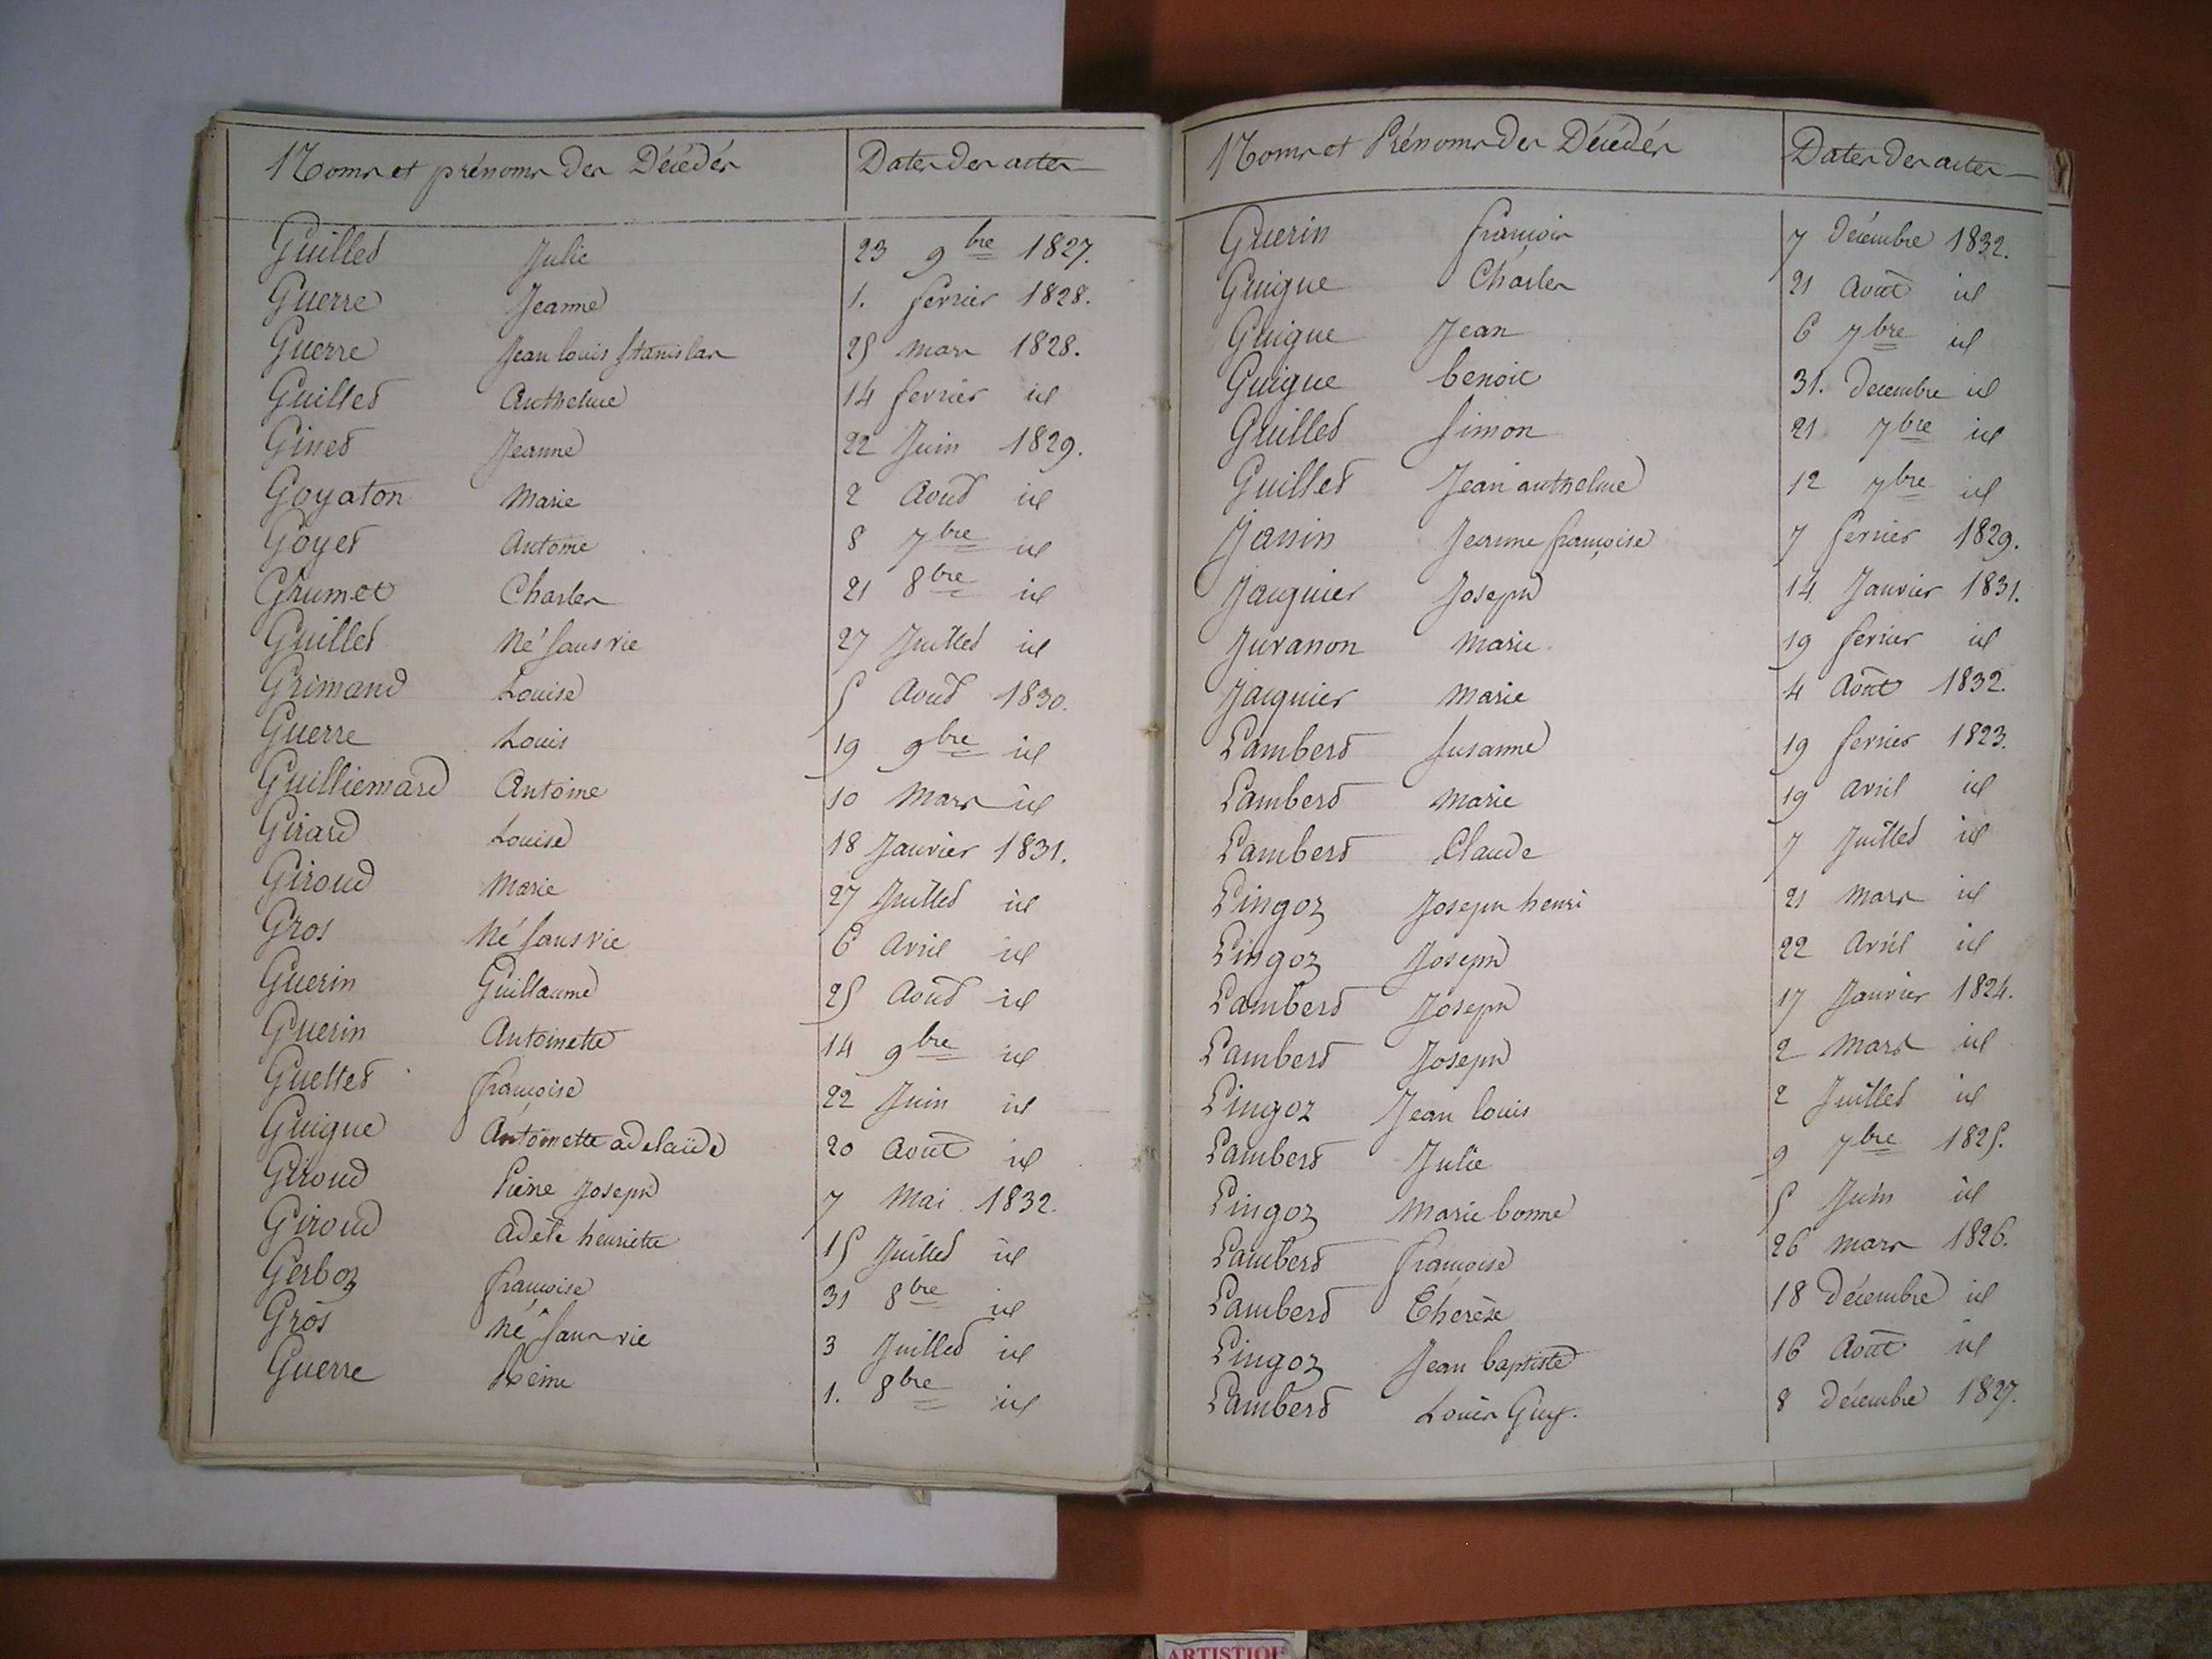 Noms et prénoms des Décédés Dates des actes
Guillet Julie 23 9bre 1827.
Guerre Jeanne 1. fevrier 1828.
Guerre Jean louis Stanislas 25 mars 1828.
Guillet Anthelme 14 fevrier id
Ginet Jeanne 22 Juin 1829.
Goyaton Marie 2 Aout id
Goyet Antoine 8 7bre id
Grumet Charles 21 8bre id
Guillet Né sans vie 27 Juillet id
Grimand Louise 5 Aout 1830.
Guerre Louis 19 9bre id
Guilliemard Antoine 10 Mars id
Girard Louise 18 Janvier 1831.
Giroud Marie 27 Juillet id
Gros Né sans vie 6 Avril id
Guerin Guillaume 25 Aout id
Guerin Antoinette 14 9bre id
Guettet françoise 22 Juin id
Guigue Antoinette adelaïde 20 Aout id
Giroud Pierre Joseph 7 Mai 1832.
Giroud adele henriette 15 Juillet id
Gerboz françoise 31 8bre id
Gros Né sans vie 3 Juillet id
Guerre Reine 1. 8bre id
Noms et Prénoms des Décédés Dates des actes
Guerin françois 7 décembre 1832.
Guigue Charles 21 Août id
Guigue Jean 6 7bre id
Guigue benoit 31. decembre id
Guillet Simon 21 7bre id
Guillet Jean anthelme 12 7bre id
Janin Jeanne françoise 7 fevrier 1829.
Jacquier Joseph 14 Janvier 1831.
Juvanon Marie 19 fevrier id
Jacquier Marie 4 Août 1832.
Lambert Susanne 19 fevrier 1823.
Lambert Marie 19 avril id
Lambert Claude 7 Juillet id
Lingoz Joseph henri 21 Mars id
Lingoz Joseph 22 Avril id
Lambert Joseph 17 Janvier 1824.
Lambert Joseph 2 Mars id
Lingoz Jean louis 2 Juillet id
Lambert Julie 9 7bre 1825.
Lingoz Marie bonne 5 Juin id
Lambert françoise 26 mars 1826.
Lambert Thérèse 18 décembre id
Lingoz Jean baptiste 16 Août id
Lambert Louis Guy. 8 décembre 1827.